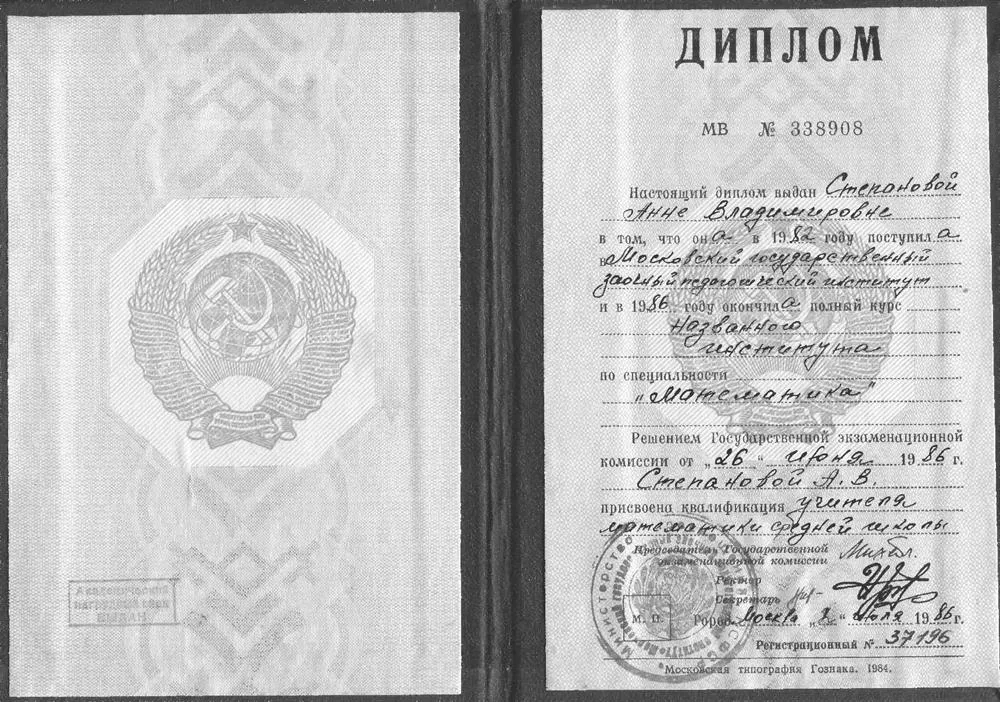 Академический
нагрудный знак
ВЫДАН
ДИПЛОМ
МВ № 338908
Настоящий диплом выдан Степановой
Анне Владимировне
в том, что она в 1982 году поступила
в Московский государственный
заочный педагогический институт
и в 1986 году окончила полный курс
названного
института
по специальности
„Математика"
Решением Государственной экзаменационной
комиссии от „26" июня 1986 г.
Степановой А. В.
присвоена квалификация учителя
математики средней школы
Председатель Государственной
экзаменационной комиссии
Ректор
Секретарь
М. П.
Город Москва „2" июля 1986 г.
Регистрационный № 37196
Московская типография Гознака. 1984.